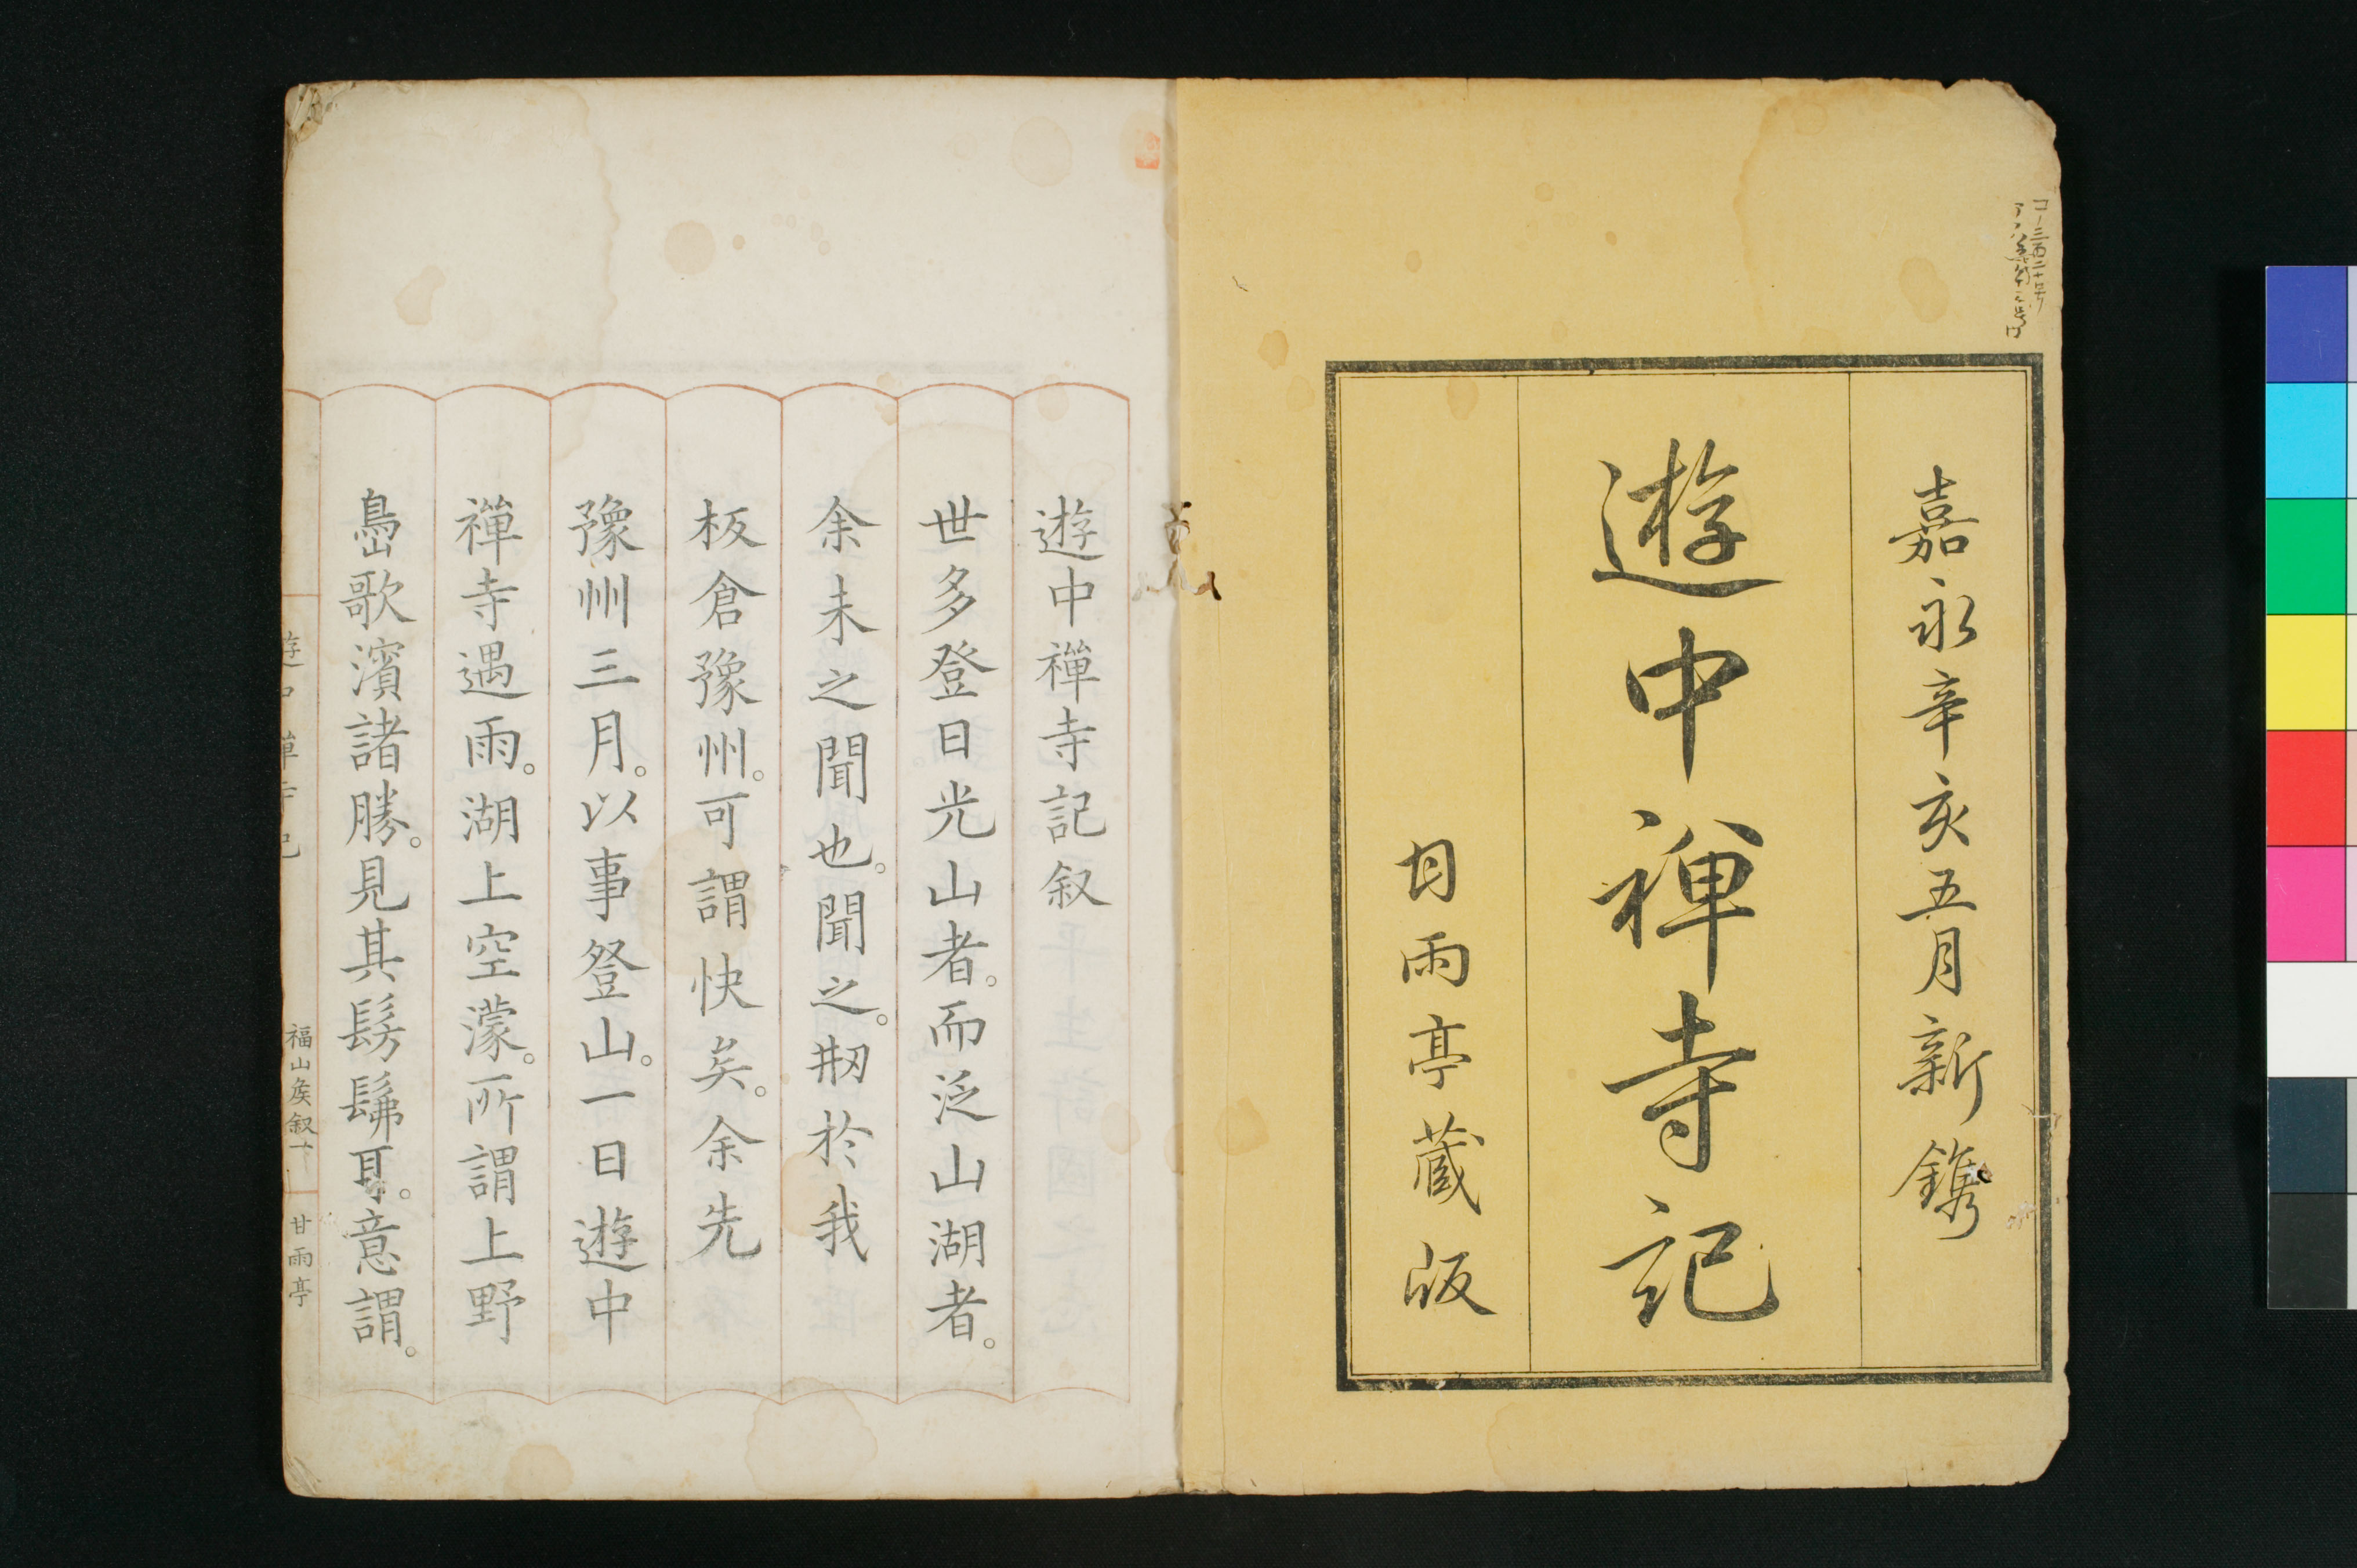 嘉永辛亥五月新鐫
遊中禅寺記
甘雨亭蔵版
遊中禪寺記叙
世多登日光山者。而泛山湖者。
余未之聞也。聞之。刱於我
板倉豫州。可謂快矣。余先
豫州三月。以事登山。一日遊中
禪寺遇雨。湖上空濛。所謂上野
嶌歌濱諸勝。見其髣髴耳。意謂。
遊中禪寺記
福山矦叙一
甘雨亭